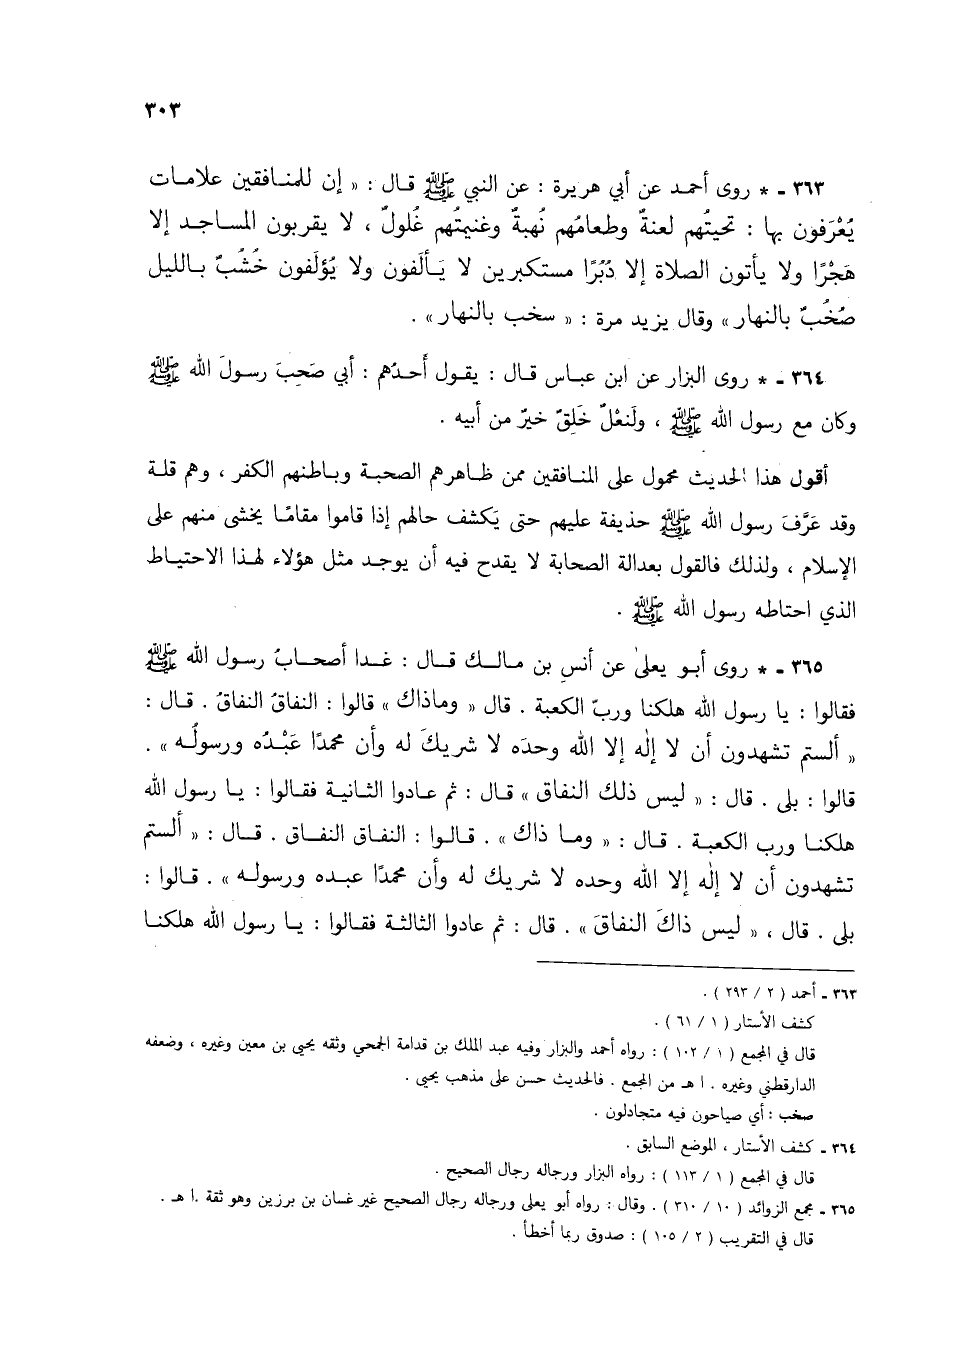 ٣٠٣
٣٦٣ - * روى أحمد عن أبي هريرة : عن النبي ﷺ قال : « إن للمنافقين علامات
يُعْرَفون بها : تحيتُهم لعنةٌ وطعامُهم نُهبةٌ وغنيمتُهم غُلولٌ ، لا يقربون المساجد إلا
هَجْرًا ولا يأتون الصلاة إلا دُبُرًا مستكبرين لا يَألَفون ولا يُؤلَفون خُشُبٌ بالليل
صُخُبٌ بالنهار» وقال يزيد مرة : « سخب بالنهار» .
٣٦٤ - * روى البزار عن ابن عباس قال : يقول أحدُهم : أبي صَحِبَ رسولَ الله ﷺ
وكان مع رسول الله ﷺ ، ولَنعْلٌ خَلِقٌ خيرٌ من أبيه .
أقول هذا الحديث محمول على المنافقين ممن ظاهرهم الصحبة وباطنهم الكفر ، وهم قلة
وقد عَرَّفَ رسول الله ﷺ حذيفة عليهم حتى يَكشف حالهم إذا قاموا مقامًا يخشى منهم على
الإسلام ، ولذلك فالقول بعدالة الصحابة لا يقدح فيه أن يوجد مثل هؤلاء لهذا الاحتياط
الذي احتاطه رسول الله ﷺ .
٣٦٥ - * روى أبو يعلىٰ عن أنس بن مالك قال : غدا أصحابُ رسول الله ﷺ
فقالوا : يا رسول الله هلكنا وربّ الكعبة . قال « وماذاك » قالوا : النفاقُ النفاقُ . قال :
« ألستم تشهدون أن لا إلٰه إلا الله وحدَه لا شريكَ له وأن محمدًا عَبْدُه ورسولُه » .
قالوا : بلى . قال : « ليس ذلك النفاق » قال : ثم عادوا الثانية فقالوا : يا رسول الله
هلكنا ورب الكعبة . قال : « وما ذاك » . قالوا : النفاق النفاق . قال : « ألستم
تشهدون أن لا إلٰه إلا الله وحده لا شريك له وأن محمدًا عبده ورسوله » . قالوا :
بلى . قال ، « ليس ذاكَ النفاقَ » . قال : ثم عادوا الثالثة فقالوا : يا رسول الله هلكنا
٣٦٣ - أحمد ( ٢ / ٢٩٣ ) .
كشف الأستار ( ١ / ٦١ ) .
قال في المجمع ( ١ / ١٠٢ ) : رواه أحمد والبزار وفيه عبد الملك بن قدامة الجمحي وثقه يحيى بن معين وغيره ، وضعفه
الدارقطني وغيره . ا هـ من المجمع . فالحديث حسن على مذهب يحيى .
صخب : أي صياحون فيه متجادلون .
٣٦٤ - كشف الأستار ، الموضع السابق .
قال في المجمع ( ١ / ١١٣ ) : رواه البزار ورجاله رجال الصحيح .
٣٦٥ - مجمع الزوائد ( ١٠ / ٣١٠ ) . وقال : رواه أبو يعلى ورجاله رجال الصحيح غير غسان بن برزين وهو ثقة .ا هـ .
قال في التقريب ( ٢ / ١٠٥ ) : صدوق ربما أخطأ .